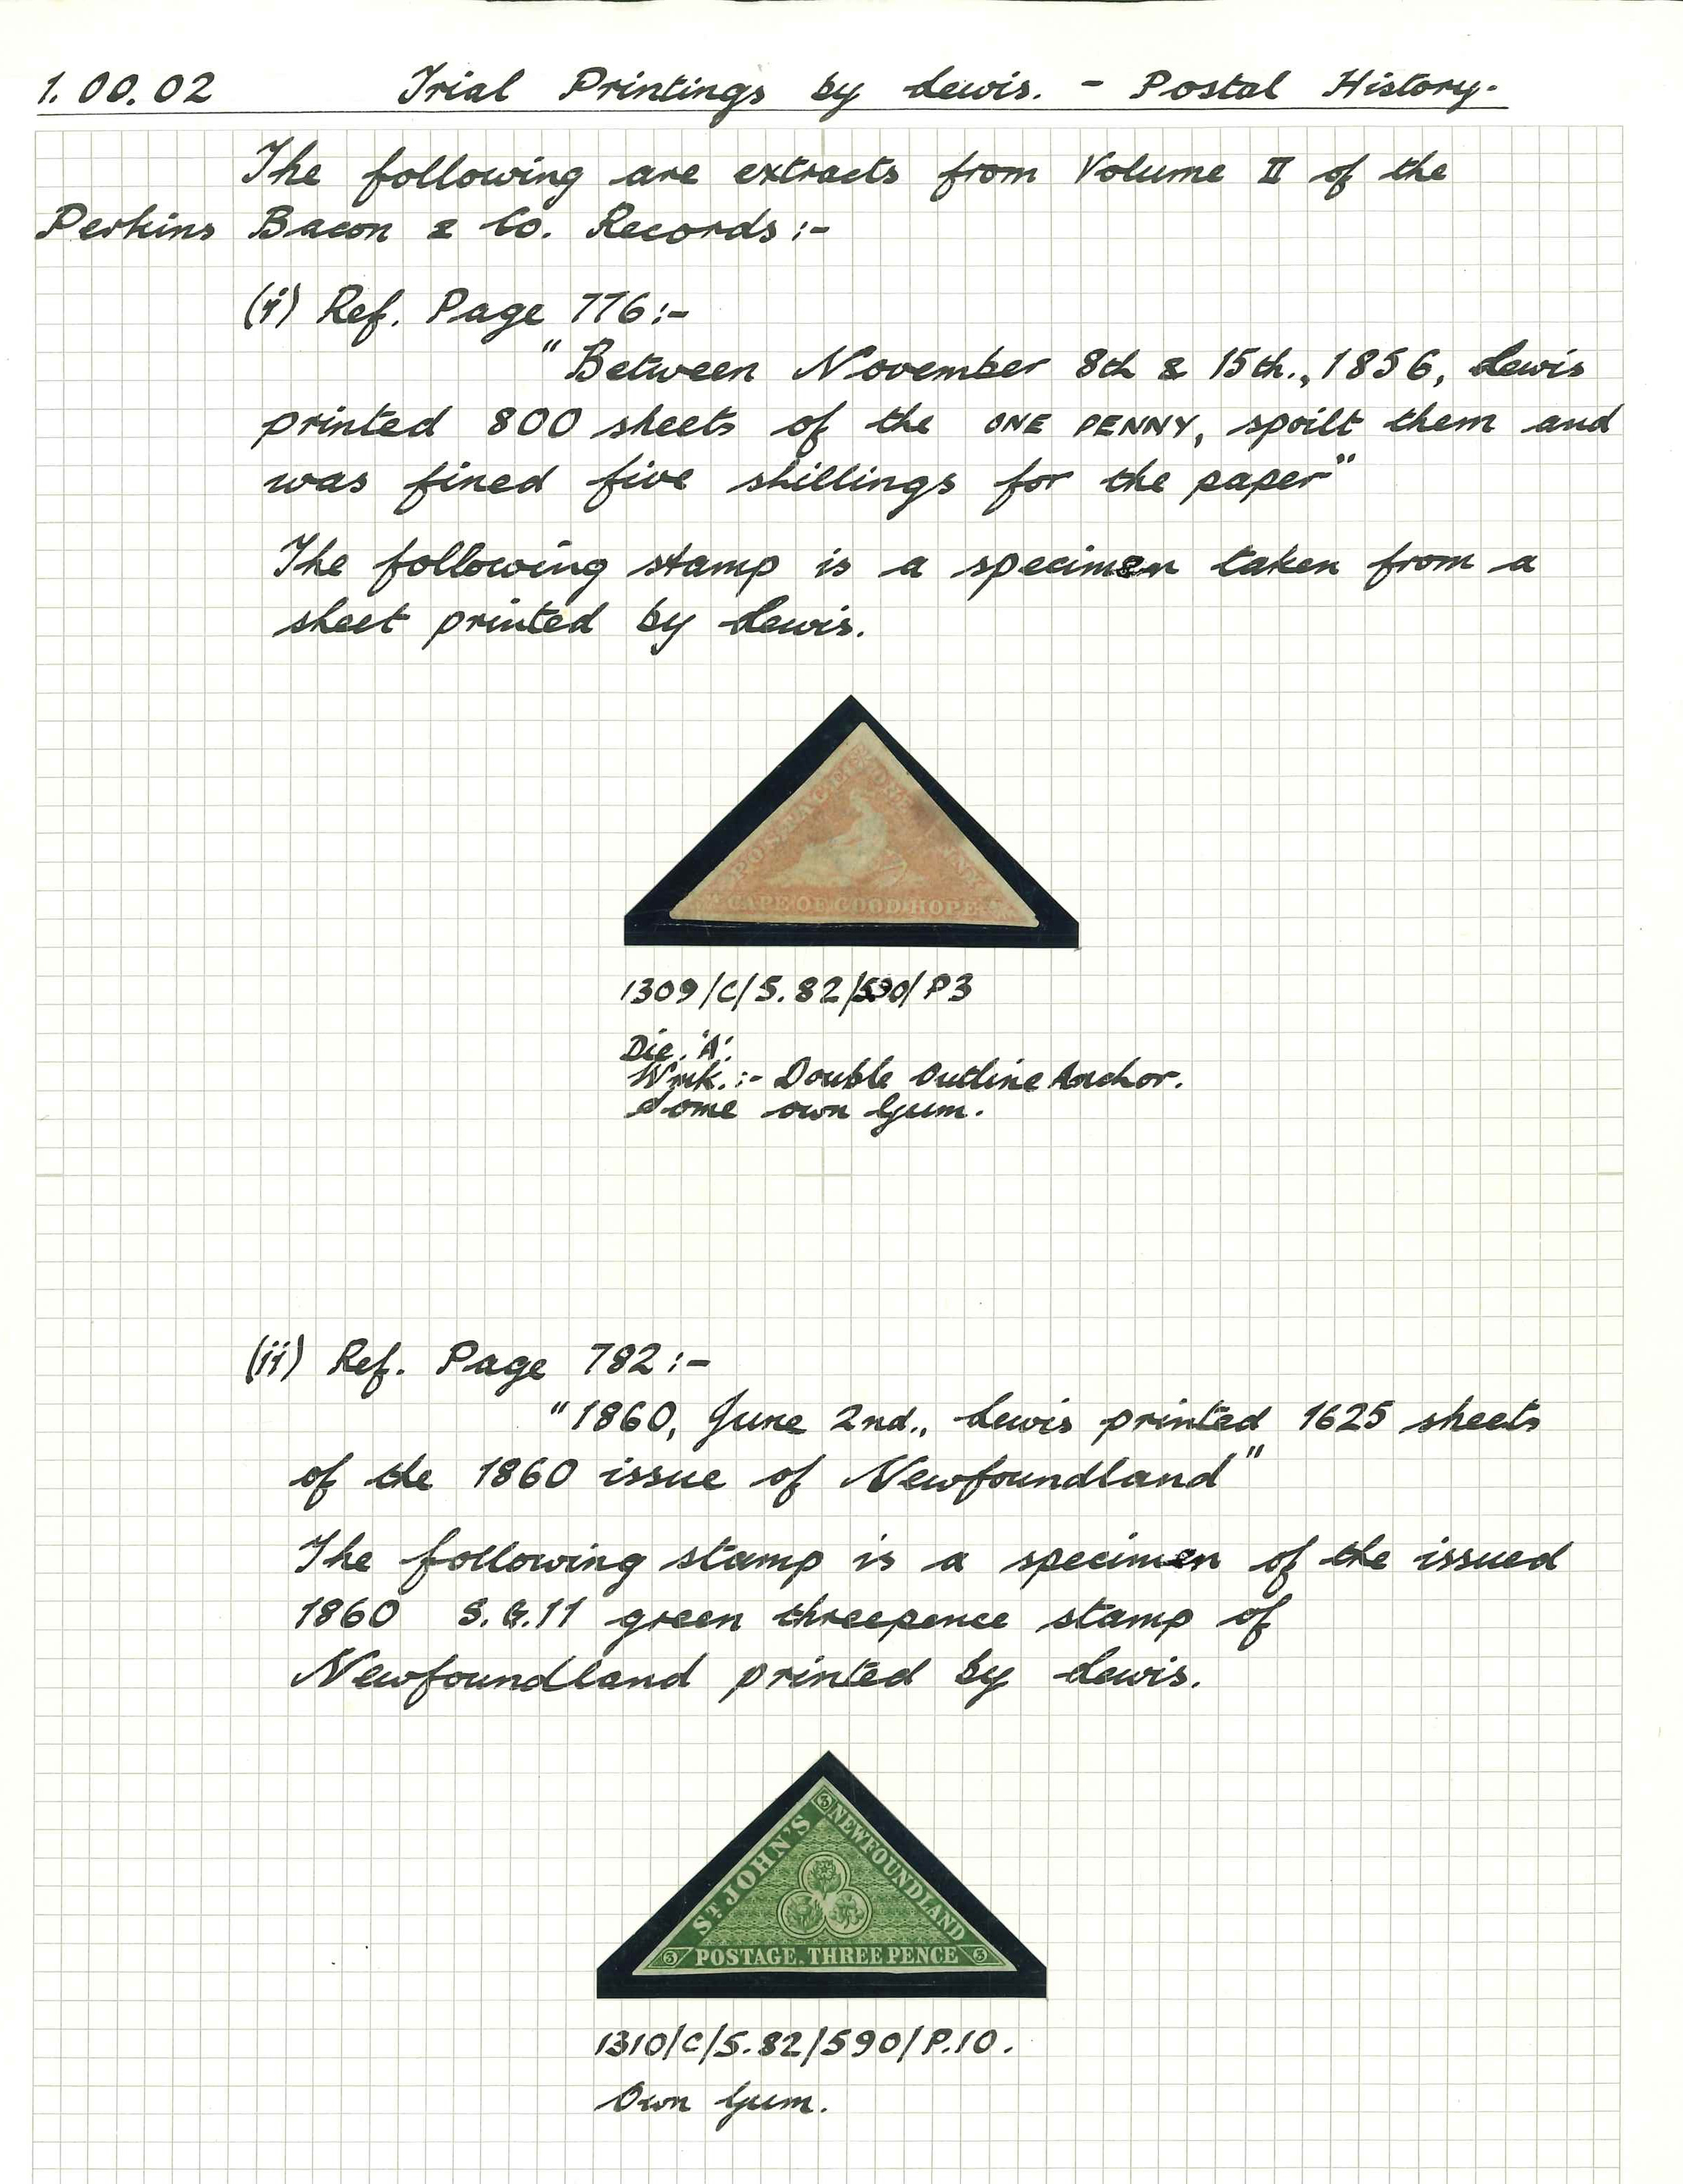 1.00.02 Trial Printings by Lewis. - Postal History.
The following are extracts from Volume II of the
Perkins Bacon & Co. Records:-
(i) Ref. Page 776:-
"Between November 8th & 15th., 1856, Lewis
printed 800 sheets of the ONE PENNY, spoilt them and
was fined five shillings for the paper"
The following stamp is a specimen taken from a
sheet printed by Lewis.
POSTAGE ONE PENNY
CAPE OF GOOD HOPE
1309/C/5.82/590/P3
Die 'A'.
Wmk.:- Double Outline Anchor.
Some own Gum.
(ii) Ref. Page 782:-
"1860, June 2nd., Lewis printed 1625 sheets
of the 1860 issue of Newfoundland"
The following stamp is a specimen of the issued
1860 S.G.11 green threepence stamp of
Newfoundland printed by Lewis.
3
ST JOHN'S NEWFOUNDLAND
3 POSTAGE. THREE PENCE 3
1310/C/5.82/590/P.10.
Own Gum.